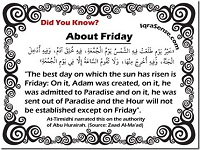 Did You Know?
IqraSense.com
About Friday
"The best day on which the sun has risen is
Friday: On it, Adam was created, on it, he
was admitted to Paradise and on it, he was
sent out of Paradise and the Hour will not
be established except on Friday".
At-Tirmidhi narrated this on the authority
of Abu Hurairah. (Source: Zaad Al-Ma'ad)